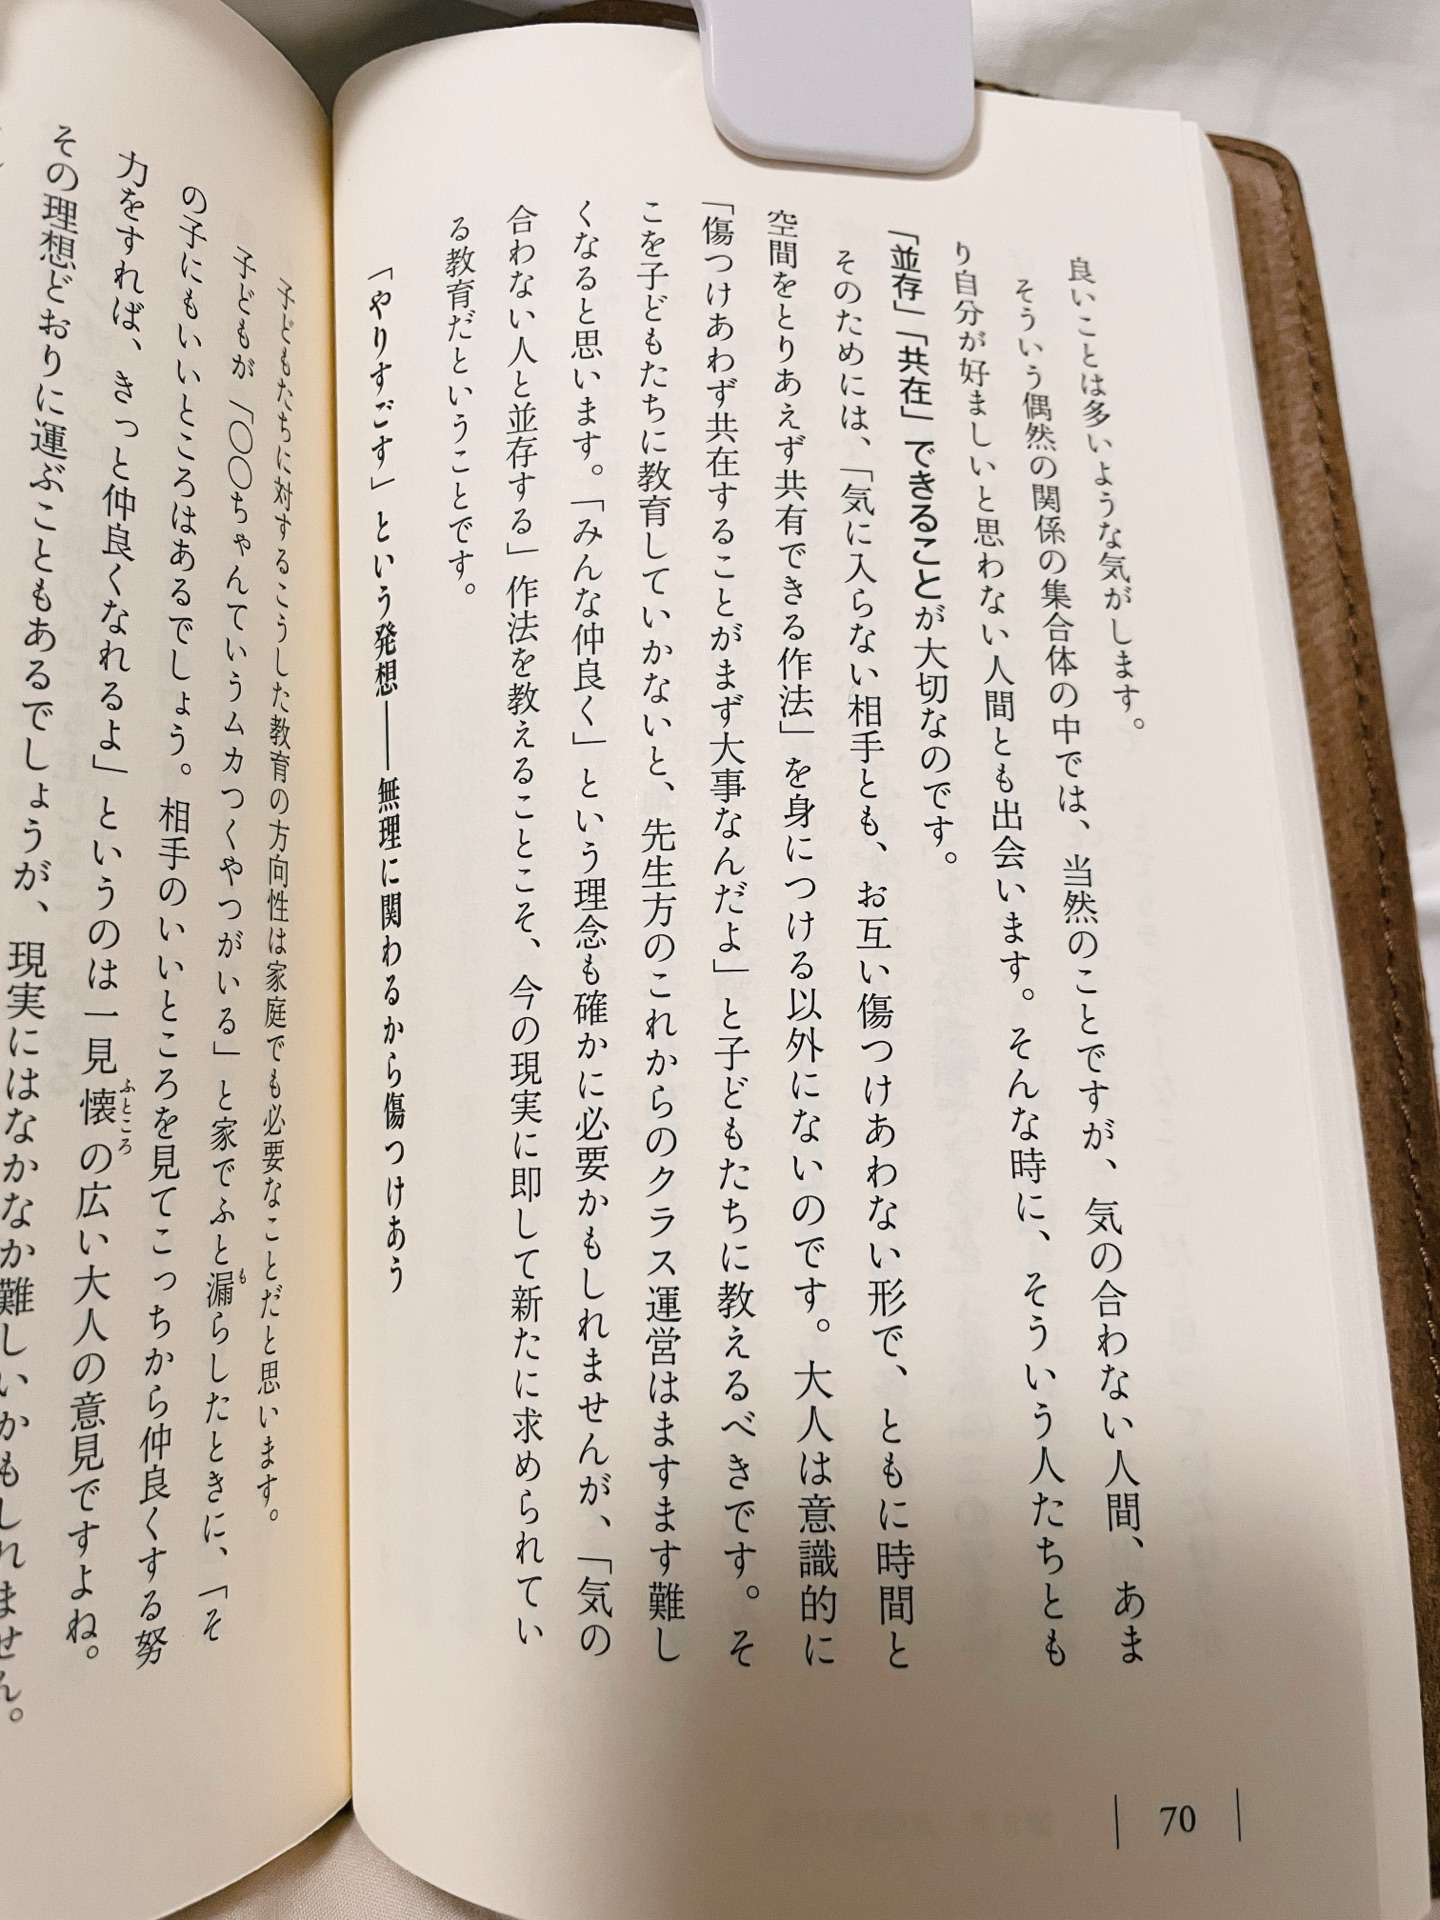 良いことは多いような気がします。
そういう偶然の関係の集合体の中では、当然のことですが、気の合わない人間、あま
り自分が好ましいと思わない人間とも出会います。そんな時に、そういう人たちとも
「並存」「共在」できることが大切なのです。
そのためには、「気に入らない相手とも、お互い傷つけあわない形で、ともに時間と
空間をとりあえず共有できる作法」を身につける以外にないのです。大人は意識的に
「傷つけあわず共在することがまず大事なんだよ」と子どもたちに教えるべきです。そ
こを子どもたちに教育していかないと、先生方のこれからのクラス運営はますます難し
くなると思います。「みんな仲良く」という理念も確かに必要かもしれませんが、「気の
合わない人と並存する」作法を教えることこそ、今の現実に即して新たに求められてい
る教育だということです。
「やりすごす」という発想――無理に関わるから傷つけあう
子どもたちに対するこうした教育の方向性は家庭でも必要なことだと思います。
子どもが「〇〇ちゃんていうムカつくやつがいる」と家でふと漏らしたときに、「そ
の子にもいいところはあるでしょう。相手のいいところを見てこっちから仲良くする努
力をすれば、きっと仲良くなれるよ」というのは一見懐の広い大人の意見ですよね。
その理想どおりに運ぶこともあるでしょうが、現実にはなかなか難しいかもしれません。
70